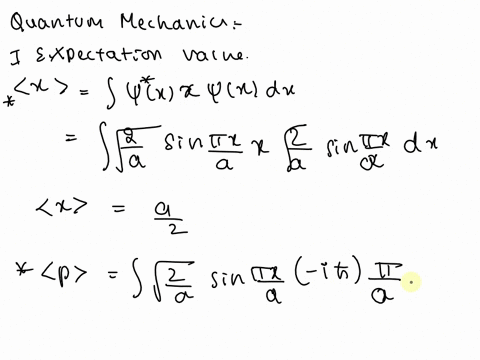 Quantum Mechanics:-
I Expectation value.
* <x> = ∫ ψ*(x) x ψ(x) dx
= ∫ √(2/a) sin πx/a x √(2/a) sin πx/a dx
<x> = a/2
* <p> = ∫ √(2/a) sin πx/a (-iħ) π/a